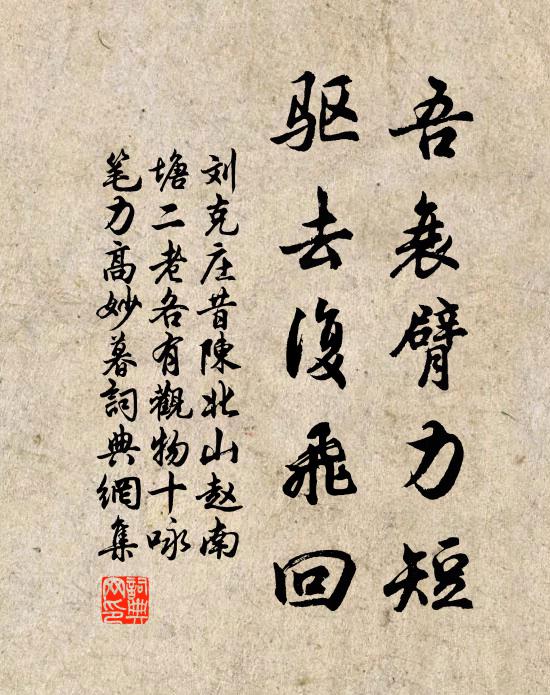 吾衰臂力短
驱去復飛回
刘克庄昔陳北山赵南
塘二老各有觀物十咏
笔力高妙暮詞典網集
詞典網印